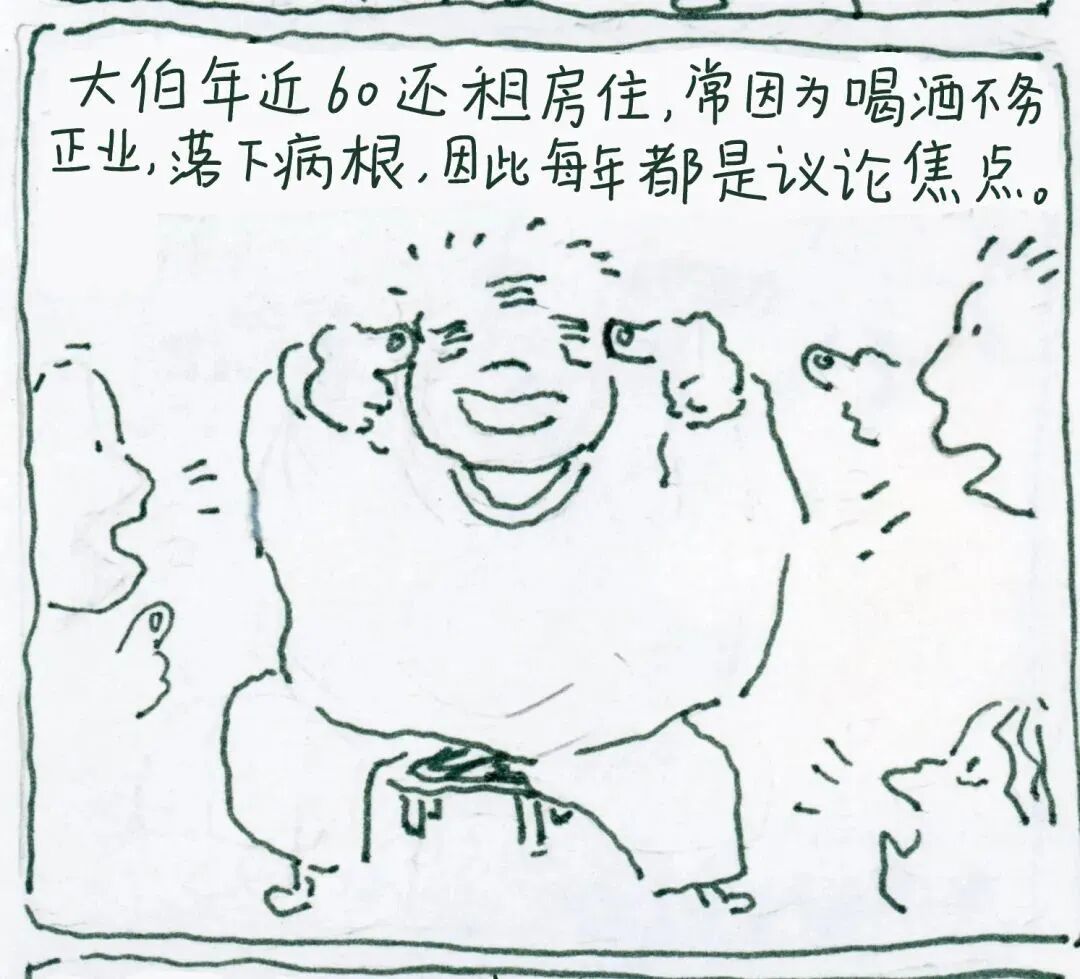 大伯年近60还租房住,常因为喝酒不务
正业,落下病根,因此每年都是议论焦点。